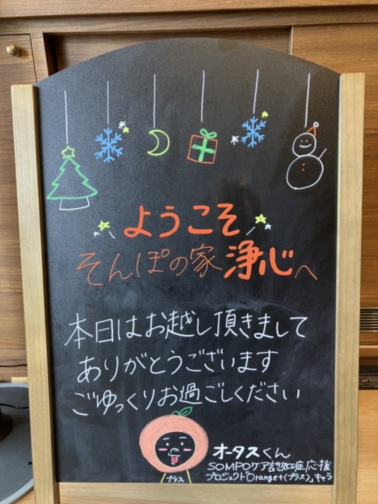 ようこそ
そんぽの家 浄心へ
本日はお越し頂きまして
ありがとうございます
ごゆっくりお過ごしください
プラス
オータスくん
SOMPOケア認知症応援
プロジェクト「Orange+(プラス)」キャラ